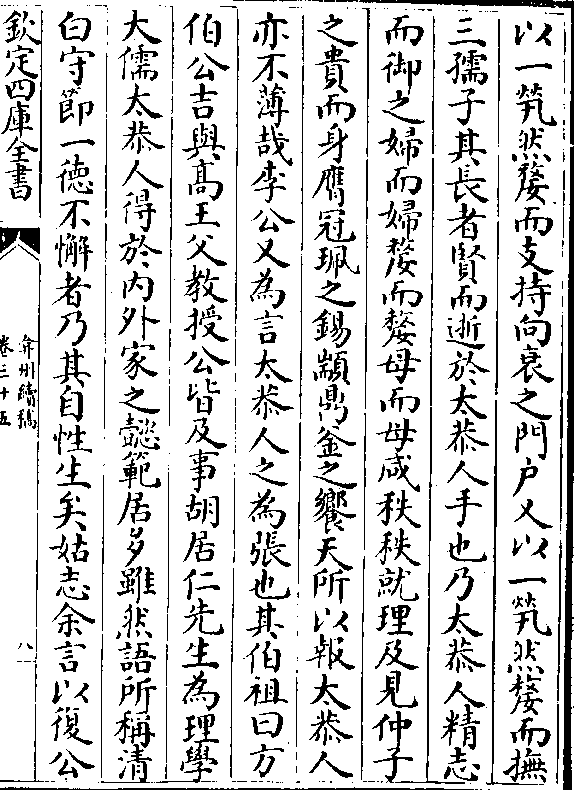 以一煢然嫠而支持向衰之門戶又以一煢然嫠而撫
三孺子其長者賢而逝於太恭人手也乃太恭人精志
而御之婦而婦嫠而嫠母而母咸秩秩就理及見仲子
之貴而身膺冠珮之錫顓鼎釜之饗天所以報太恭人
亦不薄哉李公又為言太恭人之為張也其伯祖曰方
伯公吉與髙王父教授公皆及事胡居仁先生為理學
大儒太恭人得於内外家之懿範居多雖然語所稱清
白守節一德不懈者乃其自性生矣姑志余言以復公
欽定四庫全書
弇州續稿
卷三十五
八